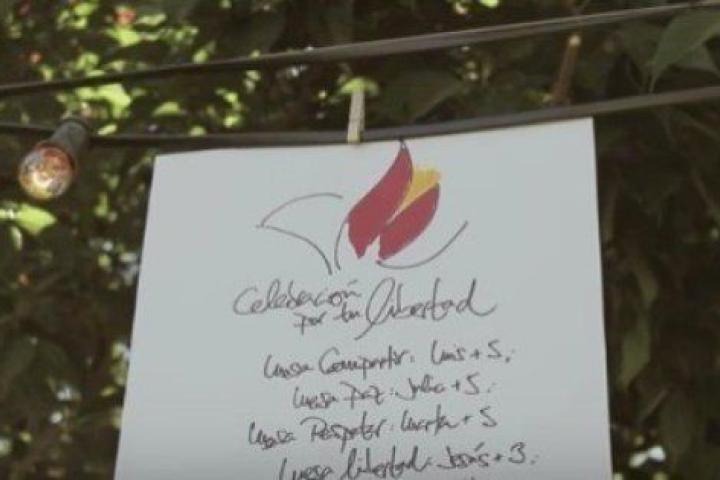 Celebración
por tu libertad
Mesa Compartir: Luis + 5;
Mesa Paz: Julia + 5;
Mesa Respetar: Marta + 5
Mesa libertad: Jesús + 3;